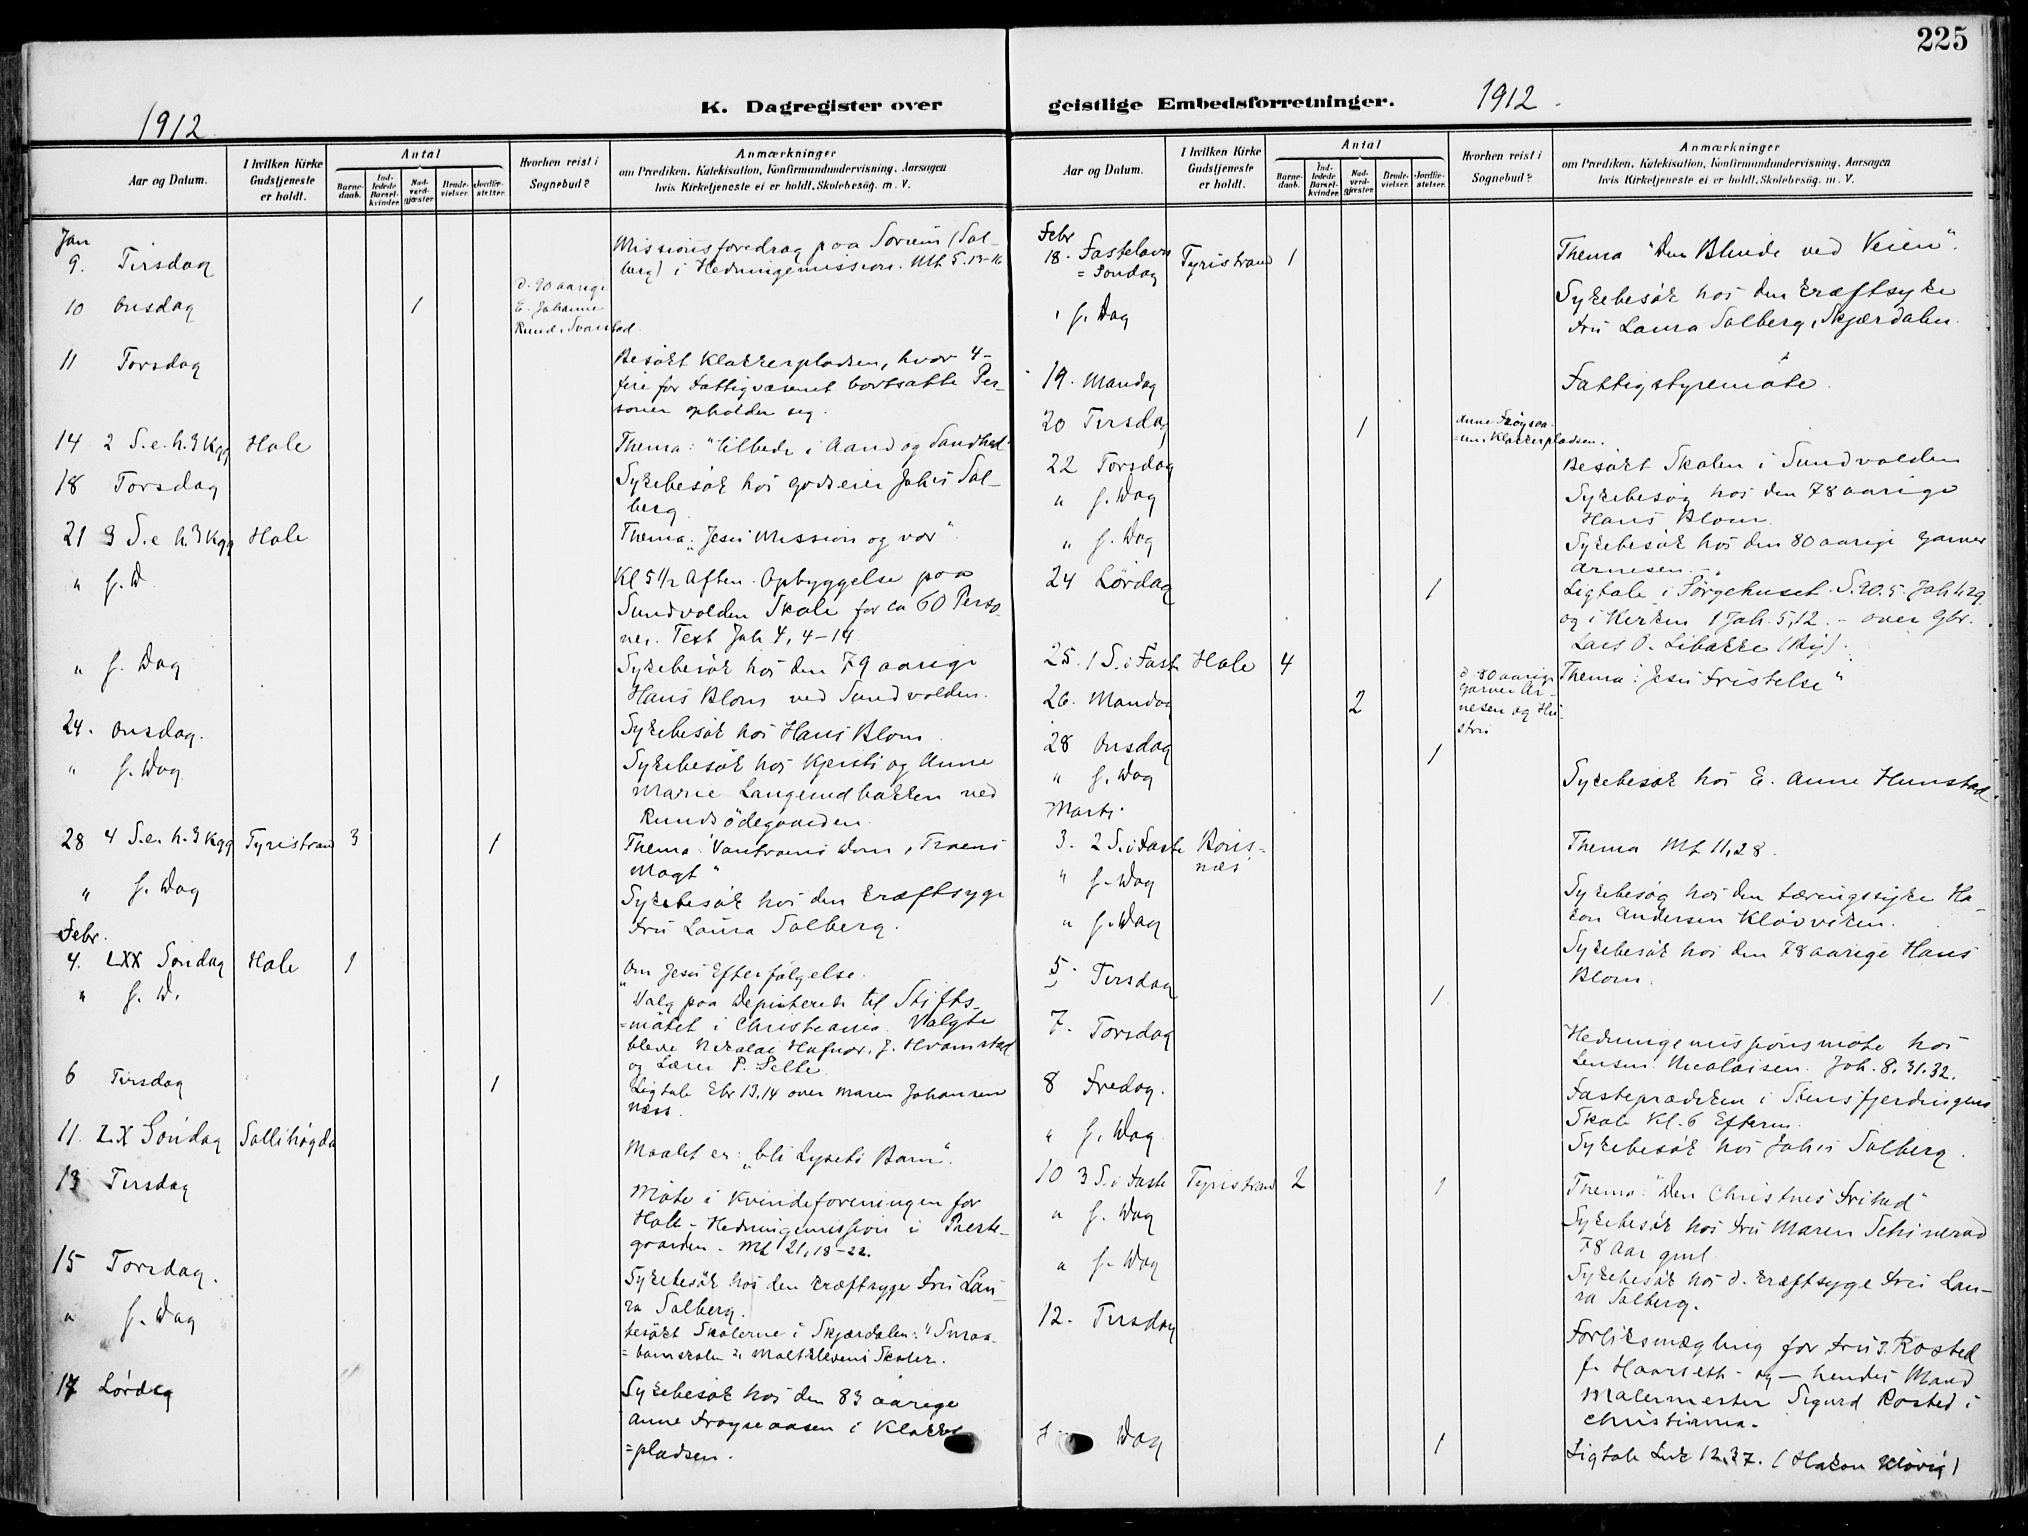 225
K. Dagregister over geistlige Embedsforretninger.
1912
1912
Aar og Datum.
I hvilken Kirke Gudstjeneste er holdt.
Antal
Barne-daab.
Ind-ledede Barsel-kvinder.
Nad-verd-gjæster
Brude-vielser.
Jordfæ-stelser.
Hvorhen reist i Sognebud?
Anmærkninger
om Prædiken, Katekisation, Konfirmandundervisning, Aarsagen
hvis Kirketjeneste ei er holdt, Skolebesøg, m. V.
Jan
9. Tirsdag Missionsforedrag paa Sørum (Sol-
berg) i Hedningemission. Mt 5.13-16
10 Onsdag 1 d. 90 aarige
E. Johanne
Rund, Svarstad.
11 Torsdag Besøkt Klokkerpladsen, hvor 4-
fire for Fattigvæsenet bortsatte Per-
soner opholder seg.
14 2 S.e.h.3 Kgg Hole Thema: "tilbede i Aand og Sandhed"
18 Torsdag Sykebesøk hos godseier Johs Sol-
berg
21 3 S.e.h.3 Kgg Hole Thema: "Jesu Mission og vor"
" s. D. Kl 5 1/2 Aften. Opbyggelse paa
Sundvolden Skole for ca 60 Perso
ner. Text Joh 4, 4-14
" s. Dag Sykebesøk hos den 79 aarige
Hans Blom ved Sundvolden.
24. Onsdag. Sykebesøk hos Hans Blom
" s. Dag Sykebesøk hos Kjersti og Anne
Marie Langerudbakken ved
Rundsødegaarden.
28 4 S.e.h.3 Kgg Tyristrand 3 1 Thema: Vantroens Dom, Troens
Magt"
" s. Dag Sykebesøk hos den kræftsyge
Fru Laura Solberg.
Febr.
4. LXX Søndag Hole 1 Om Jesu Efterfølgelse.
" s. D. Valg paa Deputerede til Stifts-
=møtet i Christiania. Valgte
bleve Nikolai Hafnor, J. Hvamstad
og Lærer P. Selte.
6 Tirsdag 1 Ligtale Ebr 13.14 over Maren Johansen
Næss.
11. LX Søndag Sollihøgda Maalet er: "bli Lysets Barn".
13 Tirsdag Møte i Kvindeforeningen for
Hole-Hedningemission i Preste-
gaarden. Mt 21, 18-22.
15 Torsdag. Sykebesøk hos den kræftsyge Fru Lau-
ra Solberg.
" s. Dag besøkt Skolerne i Skjærdalen: "Smaa-
=barnskolen & Maltklevens Skoler.
17 Lørdag Sykebesøk hos den 83 aarige
Anne Frøyseaasen i Klokker
=pladsen.
Aar og Datum.
I hvilken Kirke Gudstjeneste er holdt.
Antal
Barne-daab.
Ind-ledede Barsel-kvinder.
Nad-verd-gjæster
Brude-vielser.
Jordfæ-stelser.
Hvorhen reist i Sognebud?
Anmærkninger
om Prædiken, Katekisation, Konfirmandundervisning, Aarsagen
hvis Kirketjeneste ei er holdt, Skolebesøg, m. V.
Febr
18. Fastelavn
= Søndag Tyristrand 1 Thema "Den Blinde ved Veien".
s. Dag Sykebesøk hos den kræftsyke
Fru Laura Solberg, Skjærdalen.
19. Mandag Fattigstyremøte.
20 Tirsdag 1 Anne Frøysaa-
=sen Klokkerpladsen.
22 Torsdag Besøkt Skolen i Sundvolden
" s. Dag Sykebesøg hos den 78 aarige
Hans Blom.
" s. Dag Sykebesøk hos den 80 aarige Garver
Arnesen.
24 Lørdag 1 Ligtale i Sørgehuset S.90.5. Joh 1.29.
og i Kirken 1 Joh. 5,12. - over Gbr.
Lars O. Libakke (By).
25. 1 S. i Fast Hole 4 Thema: "Jesu Fristelse"
26. Mandag 2 d. 80 aarige
Garver Ar-
nesen og Hu-
stru
28 Onsdag 1
" s. Dag Sykebesøk hos E. Anne Hunstad.
Marts.
3. 2 S. i Faste Bøns-
næs Thema Mt 11,28.
" s. Dag Sykebesøg hos den tæringssyke Ha-
kon Andersen Kløvviken.
" s. Dag Sykebesøk hos den 78 aarige Hans
Blom.
5. Tirsdag 1
7. Torsdag Hedningemissionsmøte hos
Lensm. Nicolaisen. Joh. 8. 31.32.
8 Fredag. Fasteprædiken i Stensfjerdingens
Skole Kl. 6 Efterm
" s. Dag Sykebesøk hos Johs Solberg.
10 3 S. i Faste Tyristrand 2 1 Thema: "Den Christnes Frihed"
" s. Dag Sykebesøk hos Fru Maren
78 Aar gml.
" s. Dag Sykebesøk hos d. kræftsyge Fru Lau-
ra Solberg.
12. Tirsdag Forliksmægling for Fru Rosted
f. Haarseth - og - hendes Mand
Malermester Sigurd Rosted i
Christiania.
s. Dag 1 Ligtale Luk 12.37. (Hakon Kløvig)